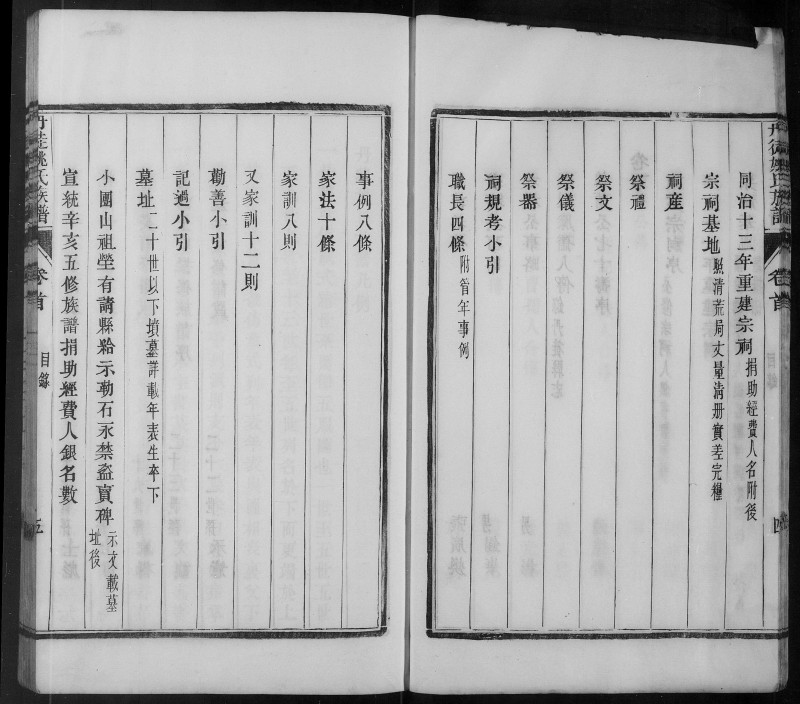 丹徒姚氏族譜 卷首 目錄 四
同治十三年重建宗祠 捐助經費人名附後
宗祠基地 照清荒局丈量清册實差完糧
祠產
祭禮
祭文
祭儀
祭器
祠規考小引
職長四條 附管年事例
事例八條
家法十條
家訓八則
又家訓十二則
勸善小引
記過小引
墓址 二十世以下墳墓詳載年表生卒下
小圌山祖塋有請縣給示勒石永禁盜賣碑 示文載墓址後
宣統辛亥五修族譜捐助經費人銀名數
丹徒姚氏族譜 卷首 目錄 五